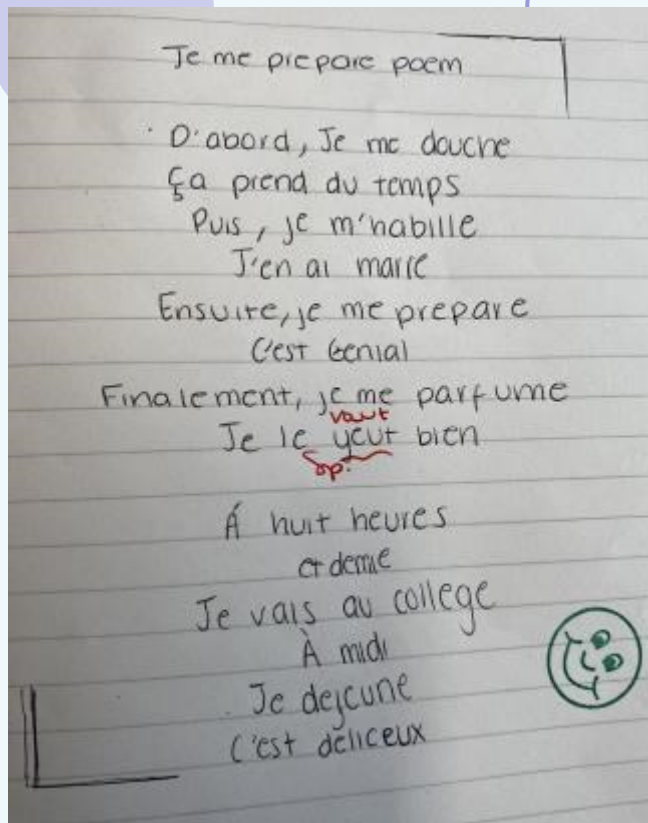 Je me prepare poem
D'abord, Je me douche
Ça prend du temps
Puis, je m'habille
J'en ai marre
Ensuite, je me prepare
C'est Genial
Finalement, je me parfume
vaut
Je le yeut bien
sp.
Á huit heures
et demie
Je vais au college
À midi
Je dejeune
C'est déliceux